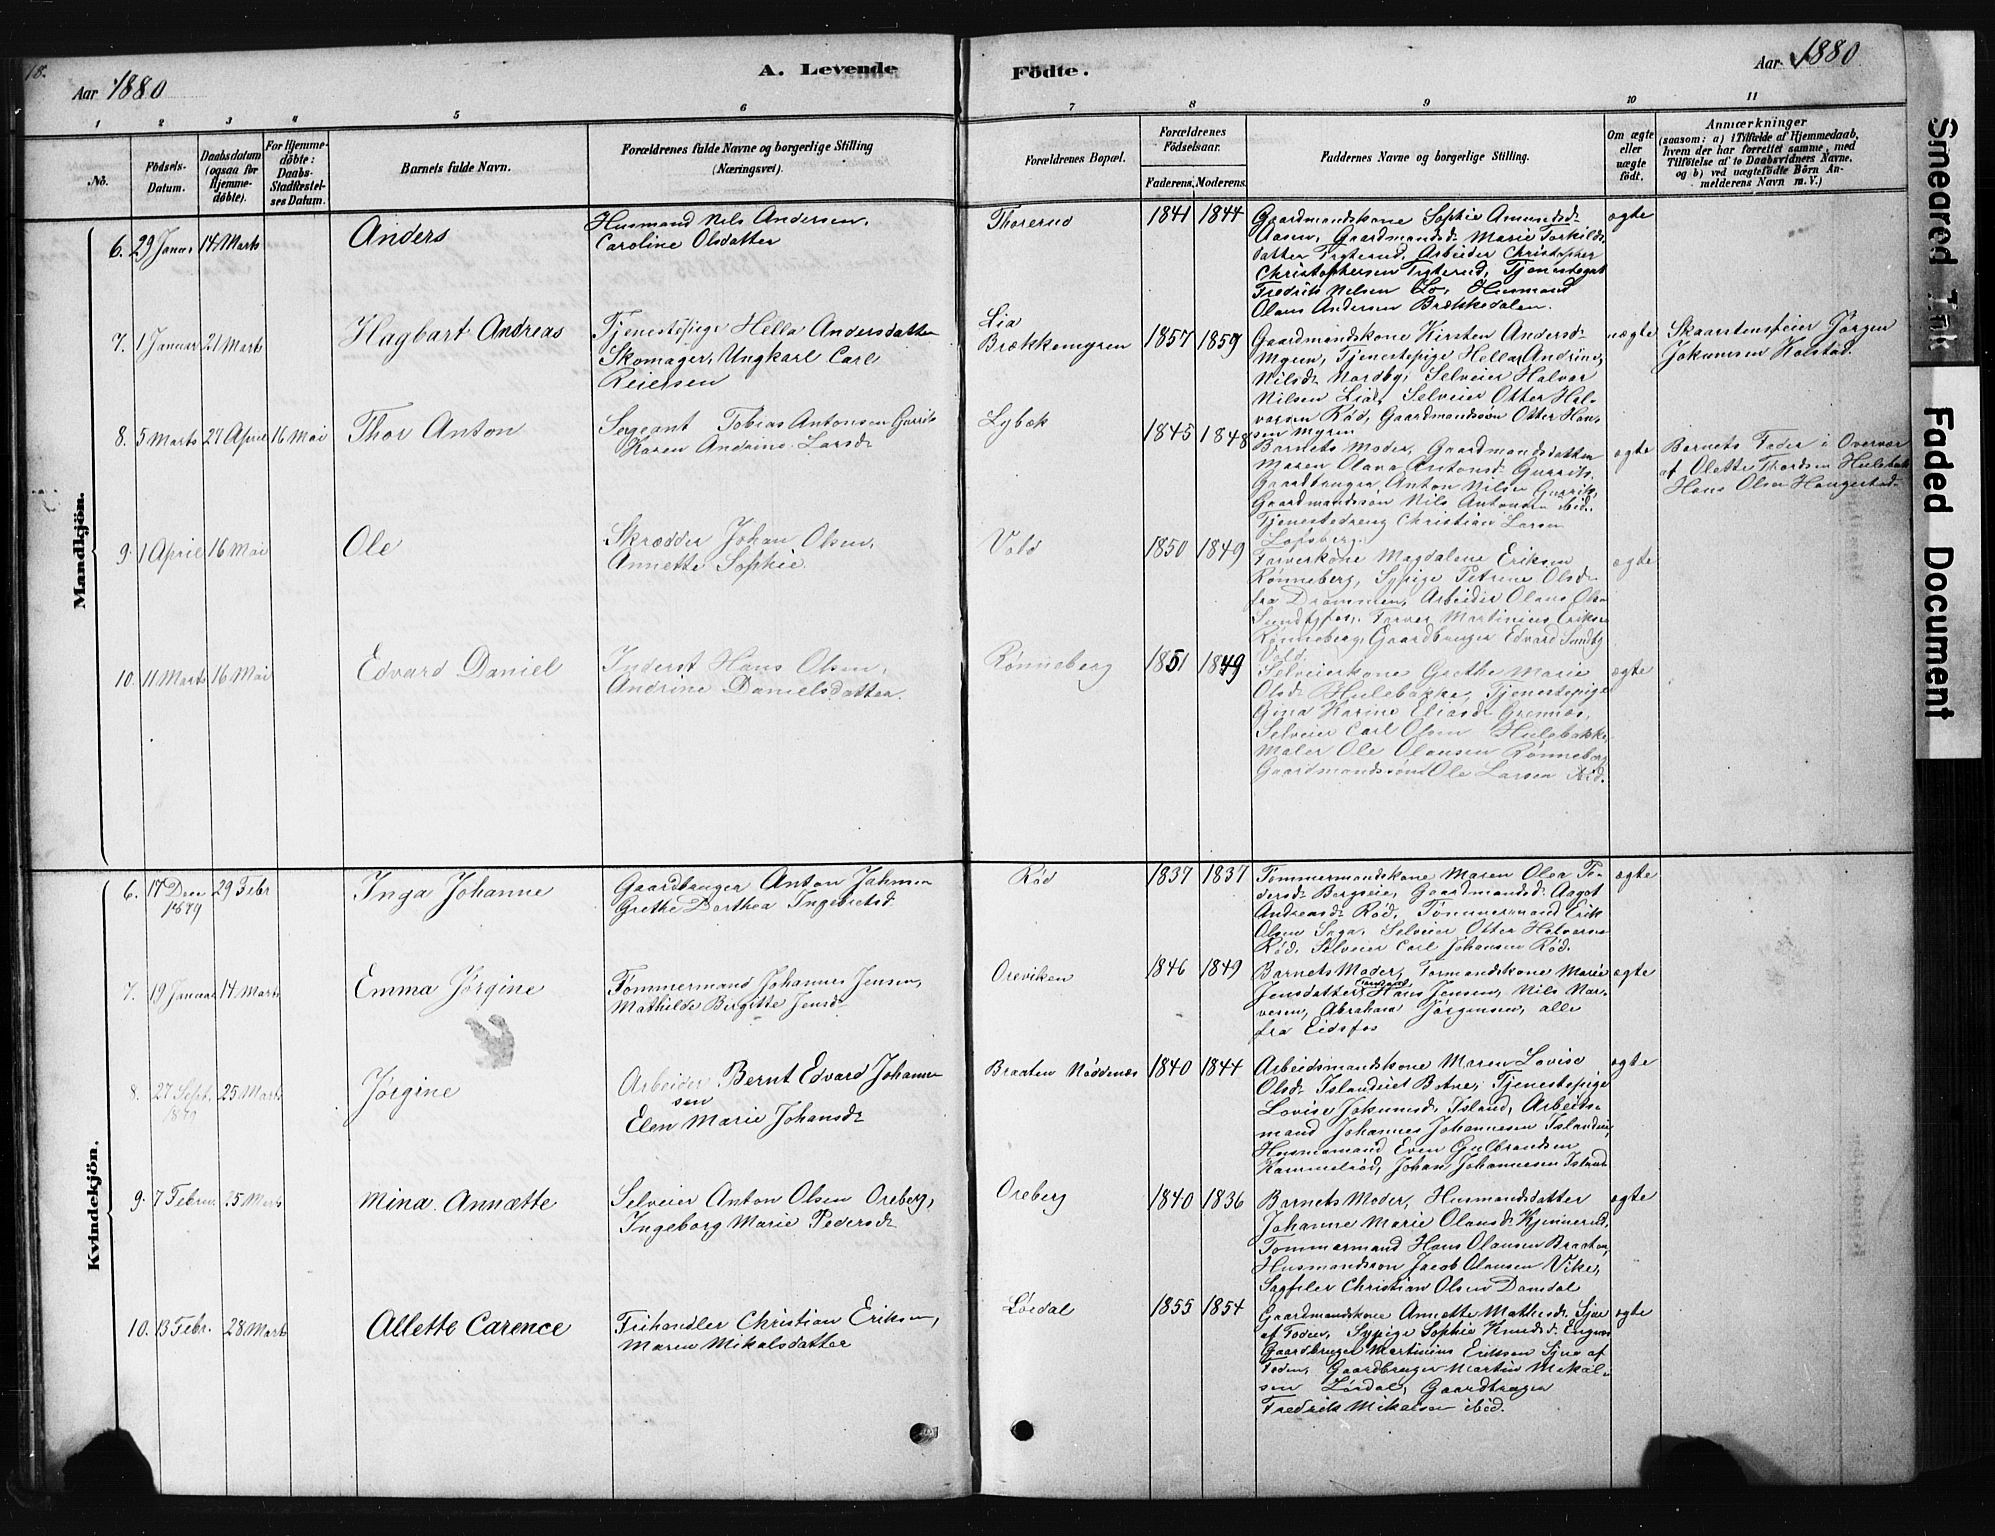 18.
Aar 1880
A. Levende
Födte.
Aar 1880
1 2 3 4 5 6 7 8 9 10 11
No.
Födsels-Datum.
Daabsdatum (ogsaa för Hjemmedöbte).
For Hjemmedöbte: Daabs-Stadfæstelses Datum.
Barnets fulde Navn.
Forældrenes fulde Navne og borgerlige Stilling (Næringsvei).
Forældrenes Bopæl.
Forældrenes Födselsaar.
Faderens. Moderens.
Faddernes Navne og borgerlige Stilling.
Om ægte eller uægte födt.
Anmærkninger
(saasom: a) i Tilfælde af Hjemmedaab, hvem der har forrettet samme, med Tilföielse af to Daabsvidners Navne, og b) ved uægtefödte Börn Anmelderens Navn m. V.)
Mandkjön.
6. 29 Janus 14 Marts
Anders
Husmand Nils Andersen,
Caroline Olsdatter
Thorerud
1841 1844
Gaardmandskone Sophie Amundsd.
Aasen, Gaardmandsd. Marie Torkilds
datter Trgterud, Arbeider Christopher
Christophersen Trgterud, Tjenestegut
Fredrik Nilsen Lo, Husmand
Olaus Andersen Brækkedalen.
ægte
7. 1 Januar 21 Marts
Hagbart Andreas
Tjenestepige Hella Andersdatter
Skomager, Ungkarl Carl
Reiersen
Lia
Brækkemyren
1857 1859
Gaardmandskone Kirsten Andersd.
Myren, Tjenestepige Hella Andrine
Nilsd. Nordby, Selveier Halvor
Nilsen Lia, Selveier Otter Hal-
vorsen Rød, Gaardmandssøn Otter Han-
sen Myren
uægte
Skaarstensfeier Jørgen
Johannsen Kolstad.
8. 5 Marts 27 April 16 Mai
Thor Anton
Sergeant Tobias Antonsen Gurrik
Karen Andrine Larsd.
Lybæk
1845 1848
Barnets Moder, Gaardmandsdatter
Maren Olava Antonsd. Gurrik,
Gaardbruger Anton Nilsen Gurrik,
Gaardmandssøn Nils Antonsen ibid.
Tjenestedreng Christian Larsen
Lofsberg.
ægte
Barnets Fader i Overvær
af Olette Thordsen Hulebak
Hans Olsen Haugestad
9. 1 April 16 Mai
Ole
Skrædder Johan Olsen,
Annette Sophie
Vold
1850 1849
Farverkone Magdalene Eriksen
Rønneberg, Sypige Petrine Olsd.
fra Drammen, Arbeider Olaus Olsen
Sundbyfos, Farver Martinius Eriksen
Rønneberg, Gaardbruger Edvard Sundby
Vold.
ægte
10. 11 Marts 16 Mai
Edvard Daniel
Inderst Hans Olsen,
Andrine Danielsdatter.
Rønneberg
1851 1849
Selveierkone Grethe Marie
Olsd. Hulebakke, Tjenestepige
Gina Karine Eliasd. Grennes,
Selveier Carl Olsen Hulebakke
Maler Ole Olausen Rønneberg
Gaardmandssøn Ole Larsen
ægte
Kvindekjön.
6. 17 Decr 29 Febr
1879
Inga Johanne
Gaardbruger Anton Jahnsen
Grethe Dorthea Ingebretsd.
Rød
1837 1837
Tømmermandskone Maren Olea Pe-
dersd. Bergseie, Gaardmandsd. Aagot
Andreasd. Rød, Tømmermand Erik
Olsen Inga, Selveier Otter Halvorsen
Rød, Selveier Carl Johansen Rød.
ægte
7. 19 Januar 14 Marts
Emma Jørgine
Tømmermand Johannes Jensen,
Mathilde Birgitte Jensd.
Oreviken
1846 1849
Barnets Moder, Formandskone Marie
Jensdatter, Formand Hans Jensen, Nils Nar-
vesen, Abraham Jørgensen, alle
fra Eidsfos
ægte
8. 27 Sept. 25 Marts
1879
Jørgine
Arbeider Bernt Edvard Johanne
sen
Elen Marie Johansd.
Braaten Nøddenæs
1840 1844
Arbeidsmandskone Maren Lovise
Olsd. Islandeiet Botne, Tjenestepige
Lovise Johannesd. Island, Arbeids-
mand Johannes Johannesen Islandeie
Husmand Even Gulbrandsen
Kammelrød, Johan Johannesen Island
ægte
9. 7 Februar 25 Marts
Mina Annætte
Selveier Anton Olsen Oreberg,
Ingeborg Marie Pedersd.
Oreberg
1840 1836
Barnets Moder, Husmandsdatter
Johanne Marie Olausd. Kjennerud,
Tømmermand Hans Olausen Braaten,
Husmandssøn Jacob Olausen Vike,
Sagfiler Christian Olsen Damdal
ægte
10. 13 Febr. 28 Marts
Allette Carence
Frihandler Christian Eriksen,
Maren Mikalsdatter
Lørdal
1855 1854
Gaardmandskone Annette Mathisd. Sjue
af Foden, Sypige Sophie Knudsd. Engnes
Gaardbruger Martinius Eriksen Sjue af
Foden, Gaardbruger Martin Mikal-
sen Lørdal, Gaardbruger
Fredrik Mikalsen ibid.
ægte
Smeared Ink
Faded Document